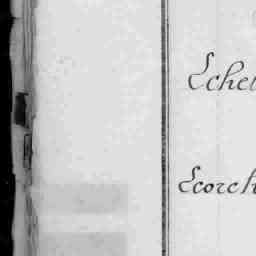 Echel
Ecorch